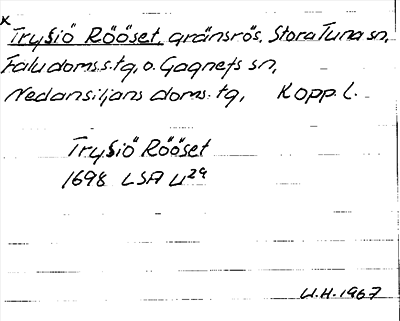 x
Trysiö Rööset, gränsrös, Stora Tuna sn,
Falu doms.s.tg, o. Gagnefs sn,
Nedansiljans doms. tg, Kopp. l.
Trysiö Rööset
1698 LSA U29
U.H. 1967